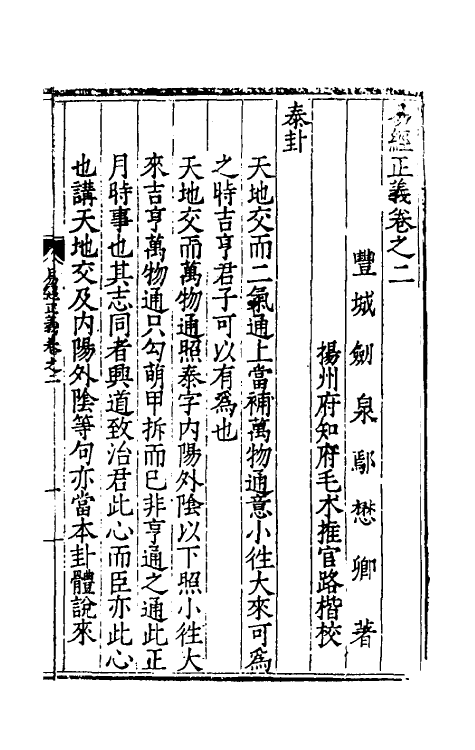 易經正義卷之二
豐城劍泉鄢懋卿著
揚州府知府毛木推官路楷校
泰卦
天地交而二氣通上當補萬物通意小徃大來可爲
之時吉亨君子可以有爲也
天地交而萬物通照泰字内陽外陰以下照小徃大
來吉亨萬物通只勾萌甲拆而已非亨通之通此正
月時事也其志同者興道致治君此心而臣亦此心
也講天地交及内陽外陰等句亦當本卦體說來
易經正義卷之二
一